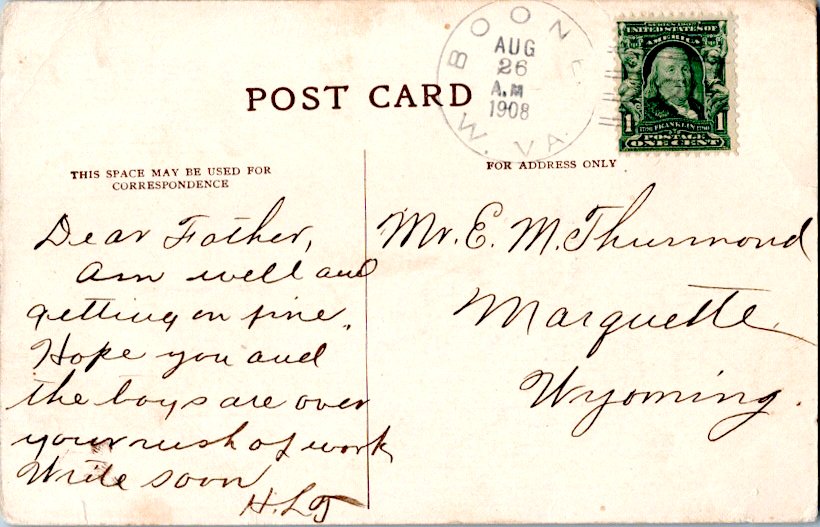 POST CARD
BOONE
AUG
26
A.M
1908
W. VA.
SERIES 1902
UNITED STATES OF
AMERICA
1706 FRANKLIN 1790
1 1
POSTAGE
ONE CENT
THIS SPACE MAY BE USED FOR
CORRESPONDENCE
FOR ADDRESS ONLY
Dear Father,
Am well and
getting on fine.
Hope you and
the boys are over
your rush of work
Write soon
H.L.T
Mr. E. M. Thurmond
Marquette,
Wyoming.